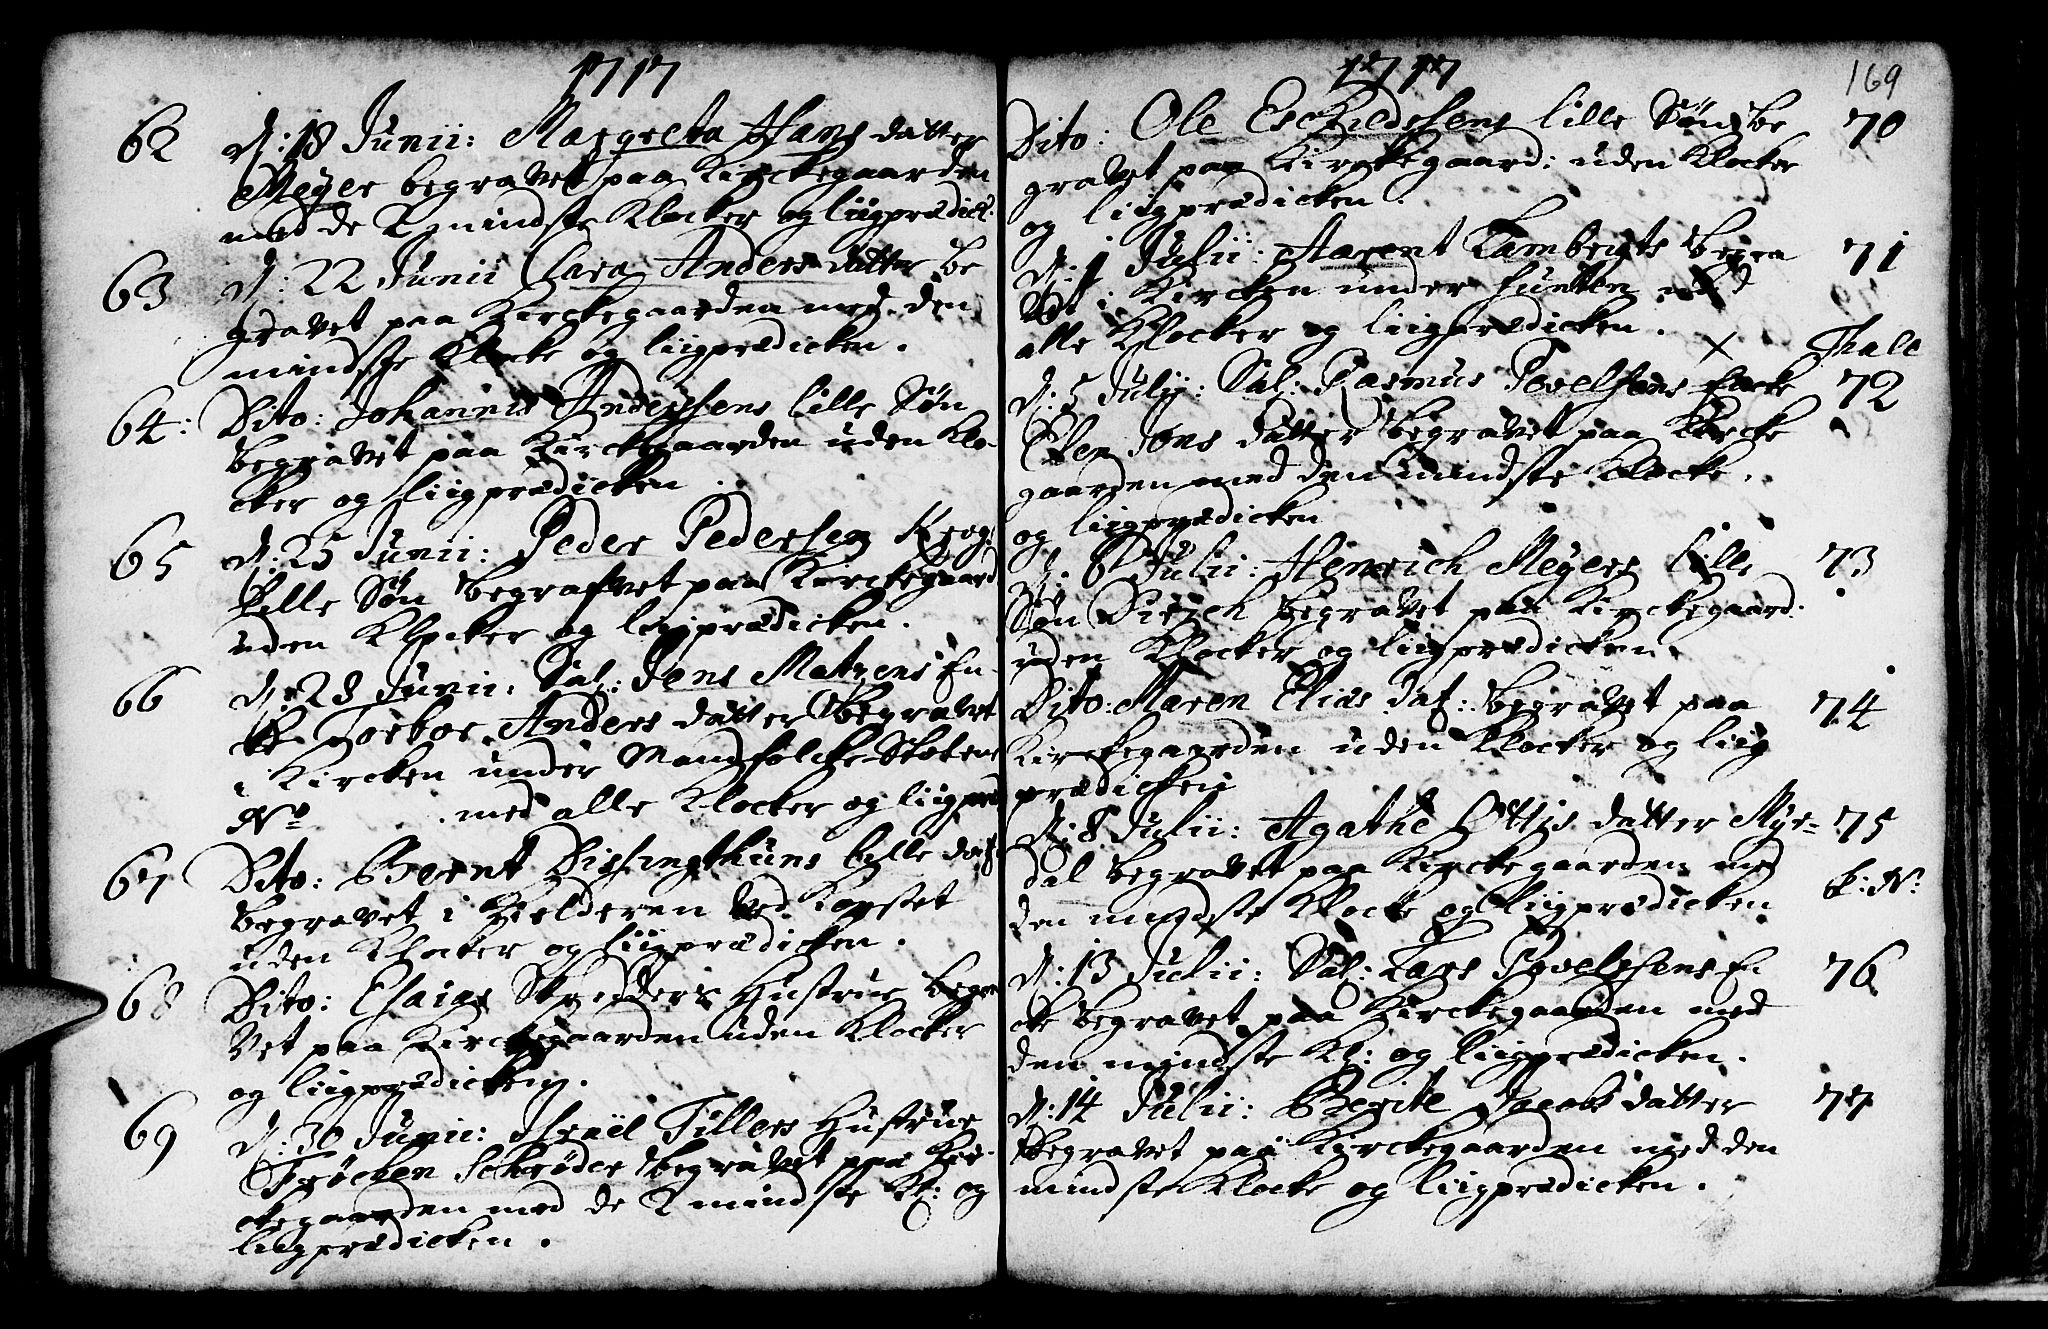 1717
62 d: 18 Junii: Margreta Hans datter
Meyer begravet paa Kirckegaarden
med de 2 mindste Klocker og liigprædick:
63 d: 22 Junii Clara Anders datter be
gravet paa Kirckegaarden med den
mindste Klocke og liigprædicken.
64: Dito: Johannis Andersens lille Søn
begravet paa Kirckegaarden uden Klo
cker og liigprædicken.
65 d: 25 Junii: Peder Pedersen Krog
lille Søn begrafvet paa Kirckegaard
uden Klocker og liigprædicken.
66 d: 28 Junii: Sal: Jens Matzens En
cke Torbor Anders datter begravet
i Kircken under Mandfolcke Stolene
No med alle Klocker og liigpræ
67 Dito: Bernt Dissingthuns lille dat
begravet i Kielderen ved Korset
uden Klocker og liigprædicken.
68 Dito: Esaias Skredders Hustrue begra
vet paa Kirckegaarden uden Klocker
og liigprædicken.
69 d: 30 Junii: Israel Tillers Hustrue
Frøchen Schrøder begravet paa Kir
ckegaarden med de 2 mindste Kl: og
liigprædicken.
1717
169
Dito: Ole Eschildsens lille Søn be 70
gravet paa Kirckegaard: uden Klocker
og liigprædicken.
d: 1 Julii: Aarent Lambegts begra 71
vet i Kircken under med
alle Klocker og liigprædicken. x
d: 5 Julij: Sal: Rasmus Povelsens Encke 72
Elen Jons datter begravet paa Kircke
gaarden med den mindste Klocke.
og liigprædicken
d: 6 Julii: Henrich Meyers lille 73
Søn Dirich begravet paa Kirckegaard.
uden Klocker og liigprædicken.
Dito: Maren Elias dat: begravet paa 74
Kirckegaarden uden Klocker og liig
prædicken
d: 8 Julii: Agathe Ottis datter Myr= 75
dal begravet paa Kirckegaarden med
den mindste Klocke og liigprædicken
d: 13 Julii: Sal: Lars Povelsens En 76
cke begravet paa Kirckegaarden med
den mindste Kl: og liigprædicken.
d: 14 Julii: Berite Jacobs datter 77
begravet paa Kirckegaarden med den
mindste Klocke og liigprædicken.